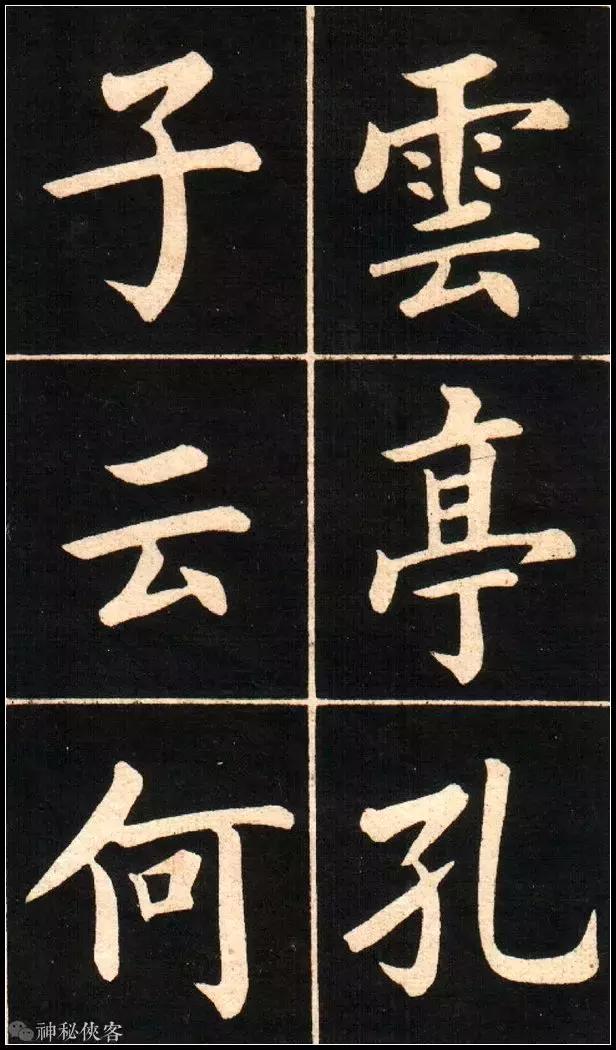 雲亭孔
子云何
神秘俠客